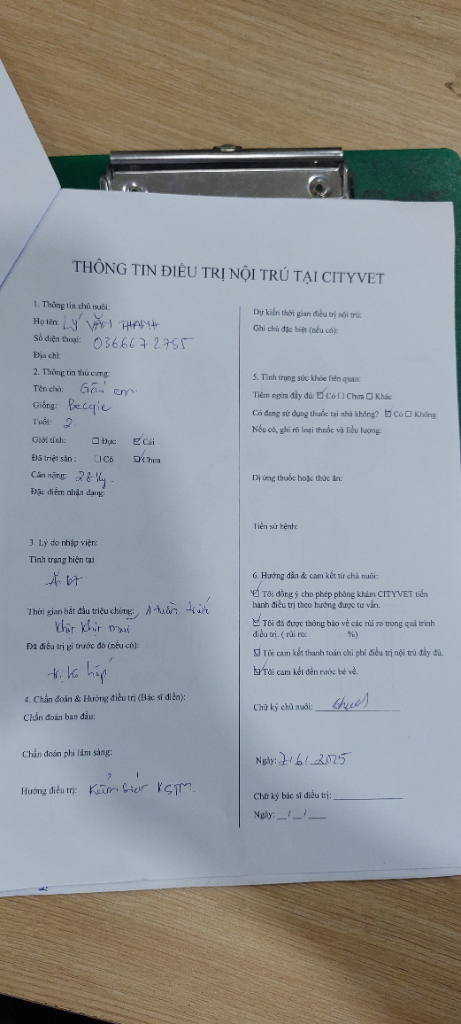 THÔNG TIN ĐIỀU TRỊ NỘI TRÚ TẠI CITYVET
1. Thông tin chủ nuôi:
Họ tên: LÝ VĂN THANH
Số điện thoại: 036667 2755
Địa chỉ:
2. Thông tin thú cưng:
Tên chó: Gấu em
Giống: Becgie
Tuổi: 2
Giới tính: ☐ Đực ☑ Cái
Đã triệt sản : ☐ Có ☑ Chưa
Cân nặng: 28 kg.
Đặc điểm nhận dạng:
3. Lý do nhập viện:
Tình trạng hiện tại
Ăn bt
Thời gian bắt đầu triệu chứng: 1 tuần trước
khịt khịt mũi
Đã điều trị gì trước đó (nếu có):
hấp
4. Chẩn đoán & Hướng điều trị (Bác sĩ điền):
Chẩn đoán ban đầu:
Chẩn đoán phi lâm sàng:
Hướng điều trị: KSTM.
Dự kiến thời gian điều trị nội trú:
Ghi chú đặc biệt (nếu có):
5. Tình trạng sức khỏe liên quan:
Tiêm ngừa đầy đủ: ☑ Có ☐ Chưa ☐ Khác
Có đang sử dụng thuốc tại nhà không? ☑ Có ☐ Không
Nếu có, ghi rõ loại thuốc và liều lượng:
Dị ứng thuốc hoặc thức ăn:
Tiền sử bệnh:
6. Hướng dẫn & cam kết từ chủ nuôi:
☑ Tôi đồng ý cho phép phòng khám CITYVET tiến
hành điều trị theo hướng được tư vấn.
☑ Tôi đã được thông báo về các rủi ro trong quá trình
điều trị. ( rủi ro: %)
☑ Tôi cam kết thanh toán chi phí điều trị nội trú đầy đủ.
☑ Tôi cam kết đến rước bé về.
Chữ ký chủ nuôi:
Ngày: 2/6/2025
Chữ ký bác sĩ điều trị: ____________
Ngày: __/__/___